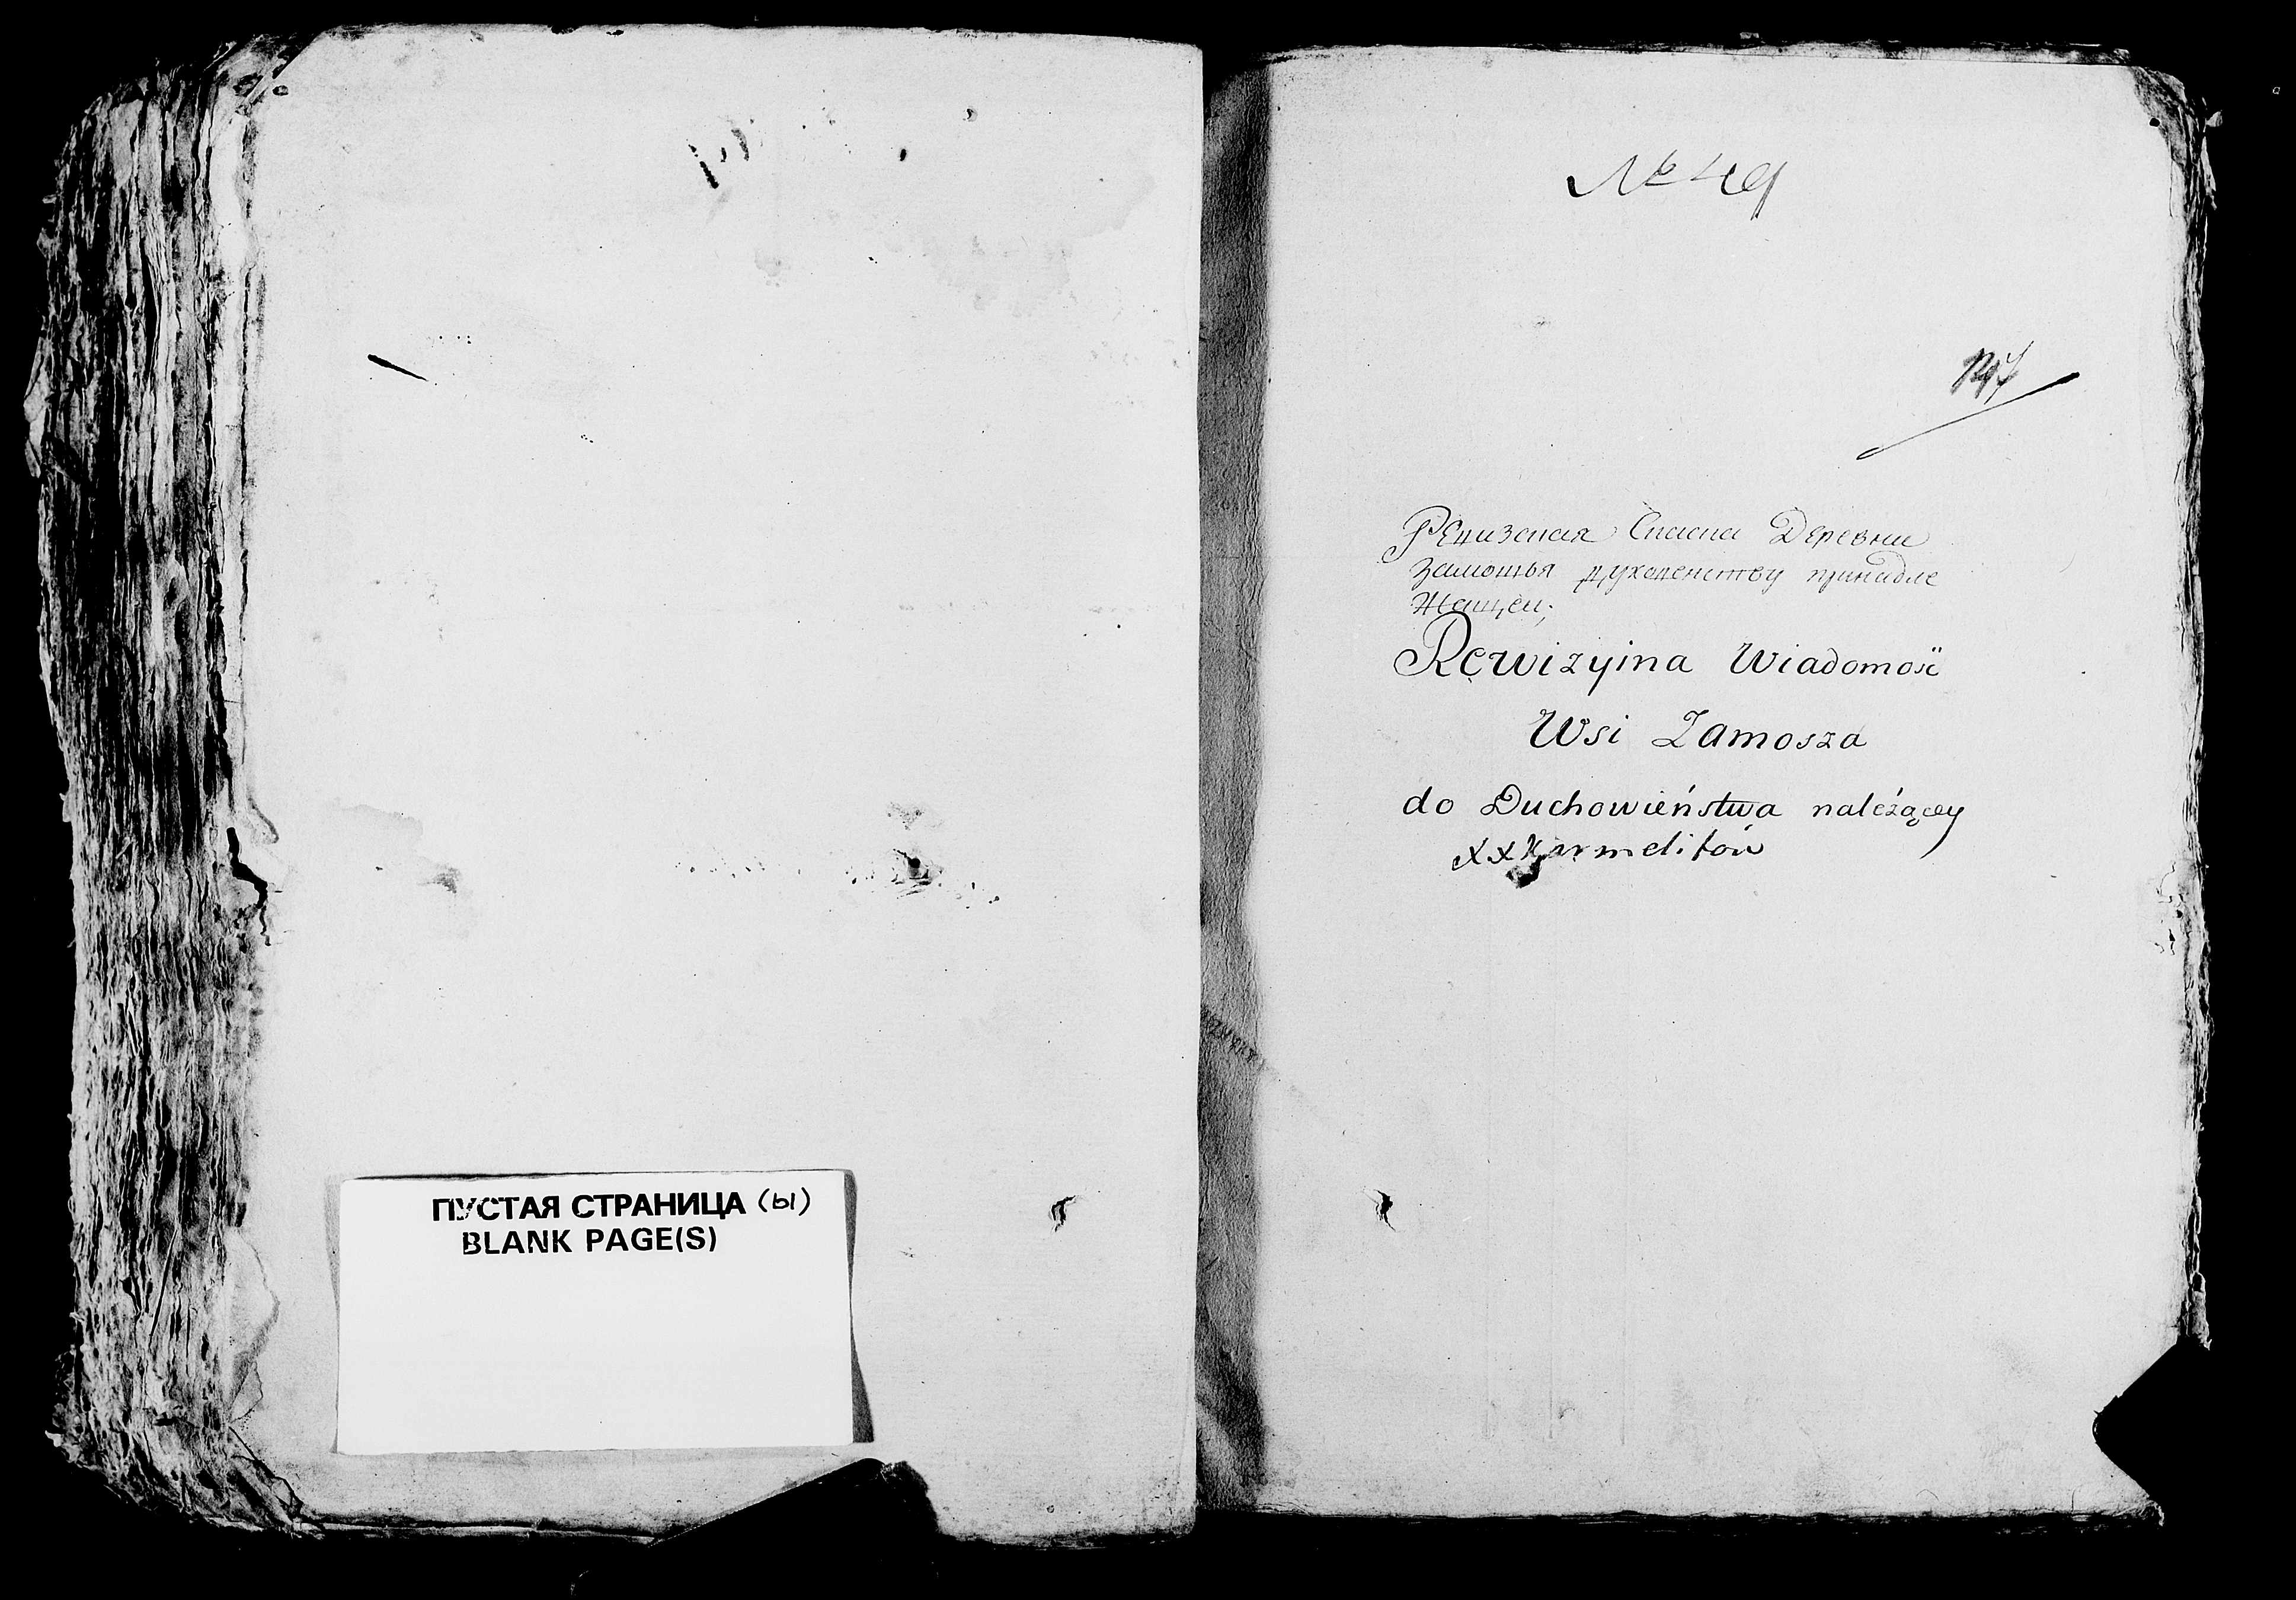 ПУСТАЯ СТРАНИЦА (ы)
BLANK PAGE(S)
№ 49
Деревни
Замошья духовенству принадле
жащей;
Rewizyina Wiadomość
Wsi Zamosza
do Duchowieństwa należącey
xx Karmelitów